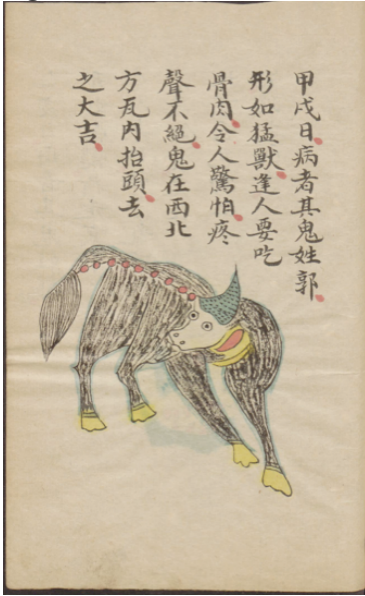 甲戌日病者其鬼姓郭
形如猛獸逢人要吃
骨肉令人驚怕疼
聲不絕鬼在西北
方瓦内抬頭去
之大吉